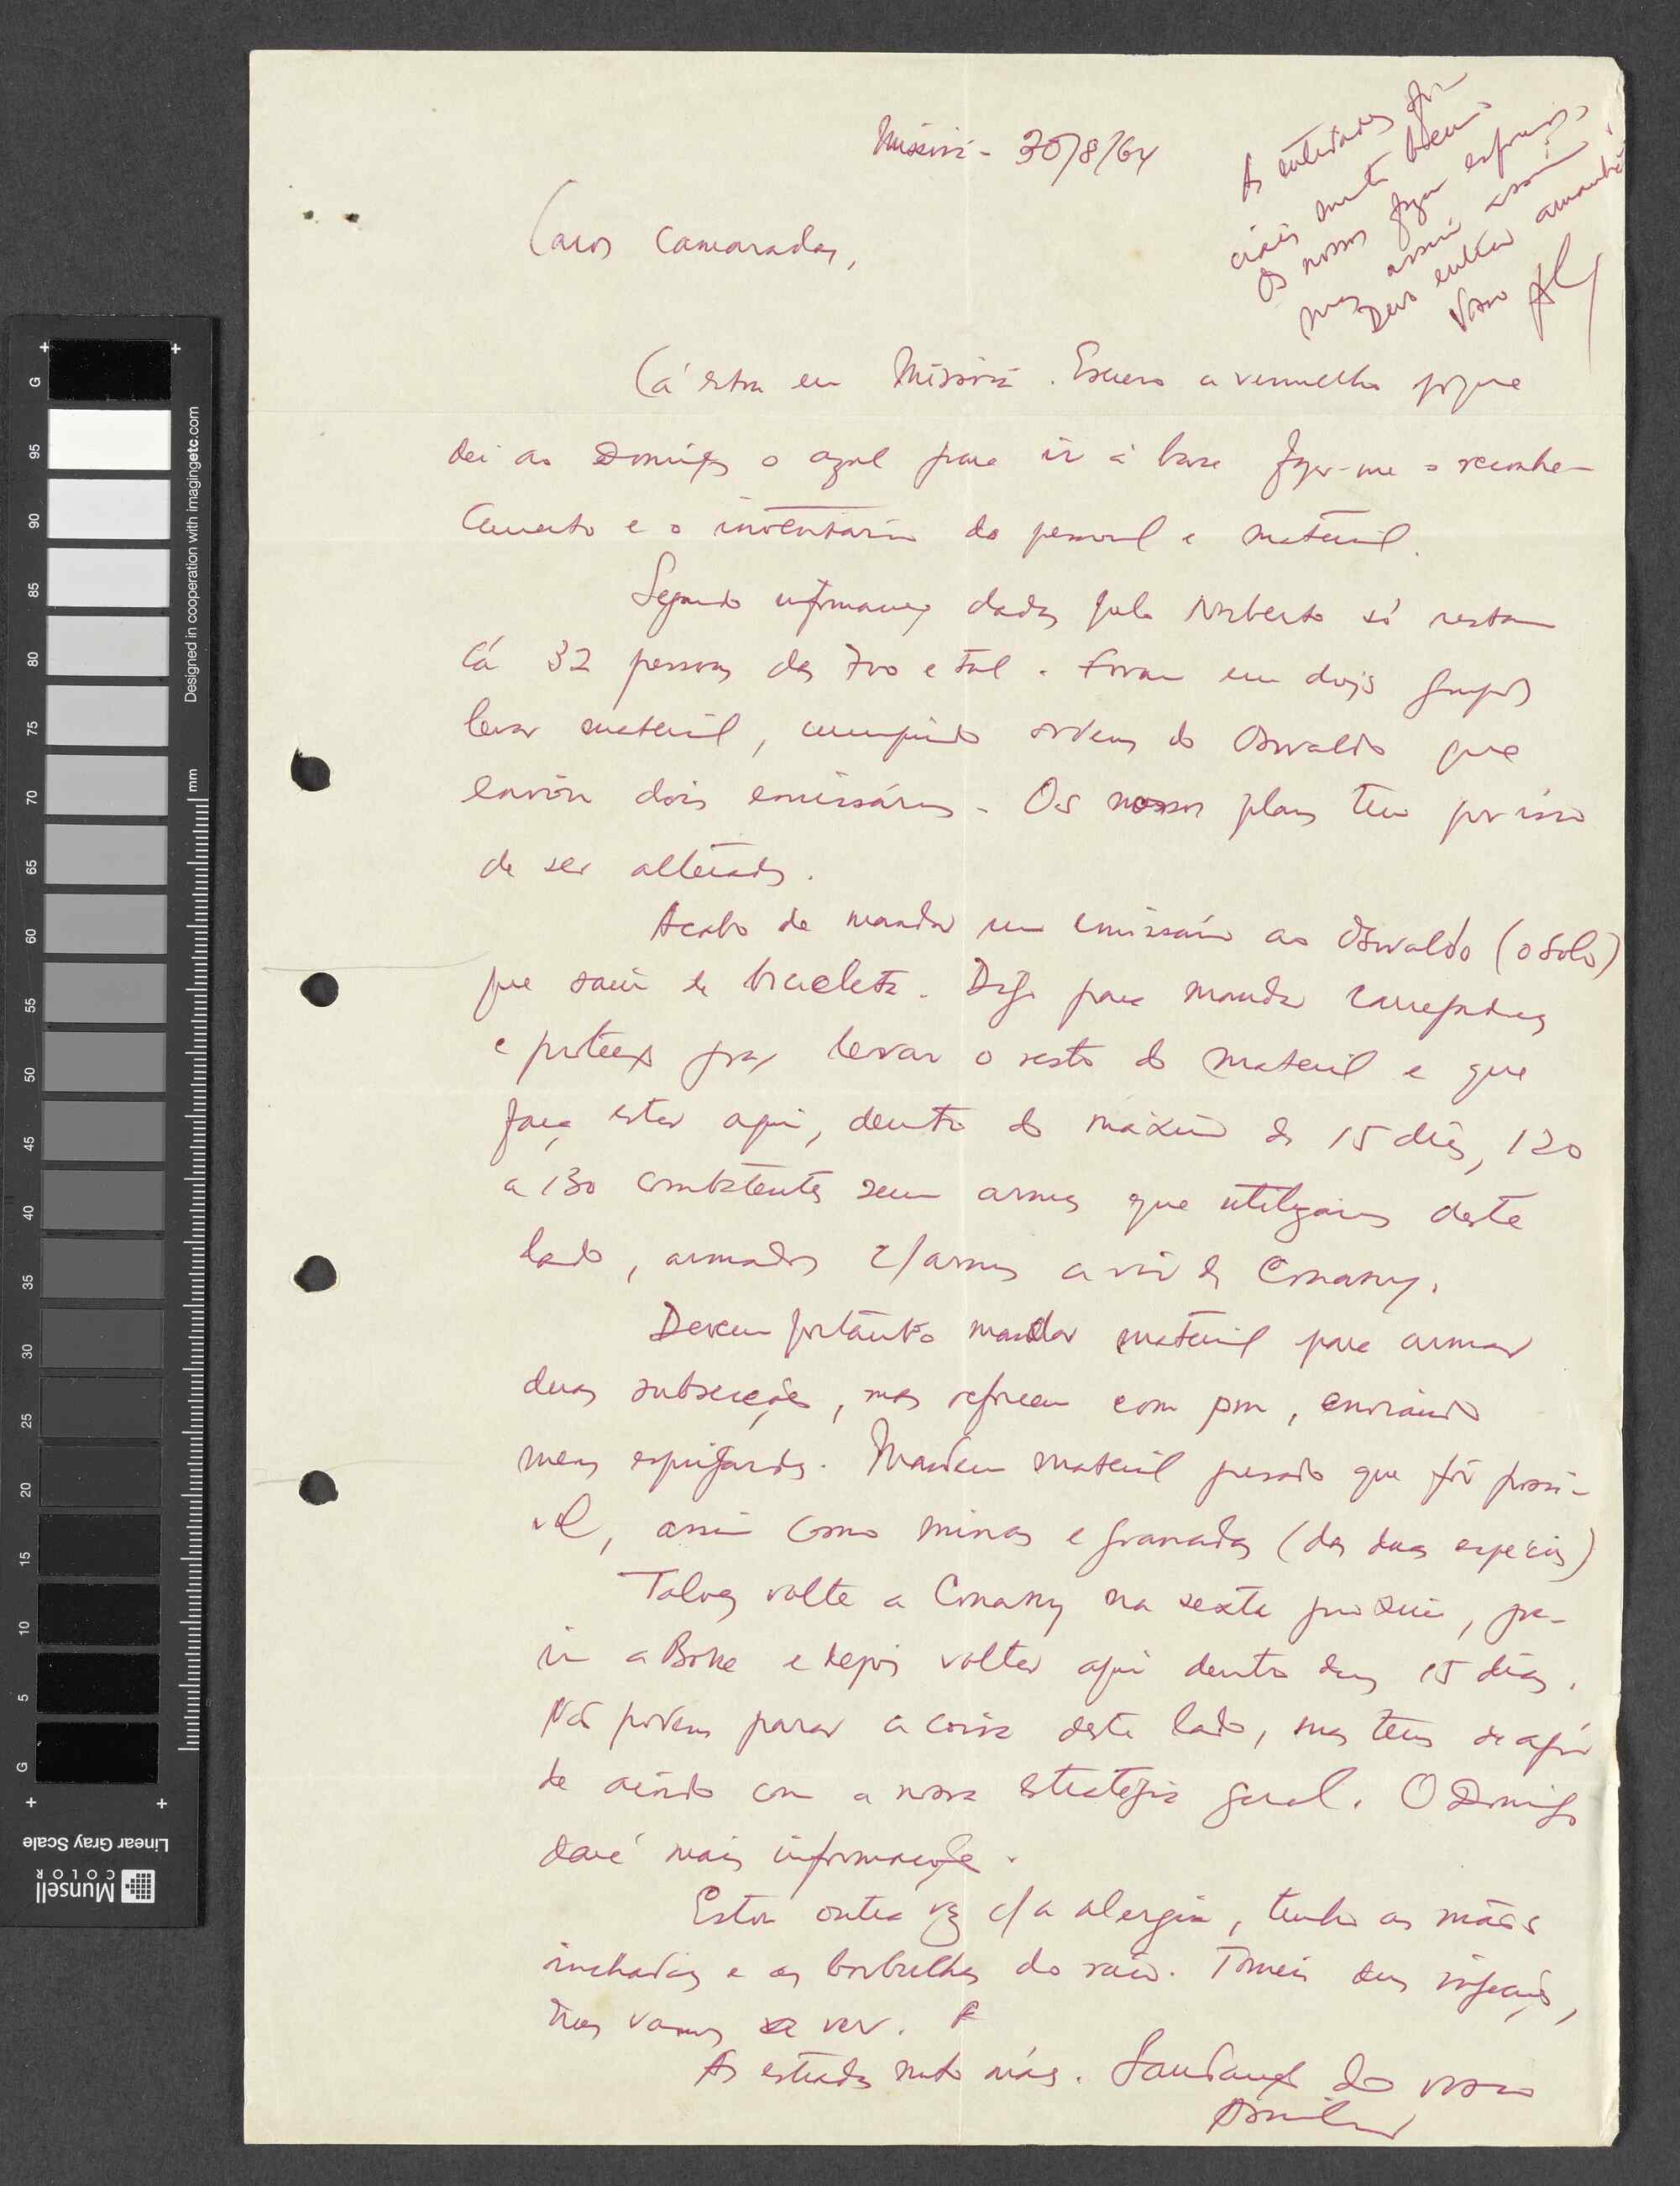 Missirá - 30/8/64
As entidades ofi-
ciais muito bem.
Os nossos fazem esforços,
mas assim, assim.
Devo voltar amanhã.
Vosso AC
Caros camaradas,
Cá estou em Missirá. Escrevo a vermelho porque
dei ao Domingos o azul para ir à base fazer-me o reconhe-
cimento e o inventário do pessoal e material.
Segundo informações dadas pelo Norberto só restam
cá 32 pessoas das 700 e tal. Foram em dois grupos
levar material, cumprindo ordens do Osvaldo que
enviou dois emissários. Os nossos planos têm por isso
de ser alterados.
Acabo de mandar um emissário ao Osvaldo (o Solo)
que saiu de bicicleta. Digo para mandar carregadores
e protecção para levar o resto do material e que
faça estar aqui, dentro do máximo de 15 dias, 120
a 130 combatentes sem armas que utilizaremos deste
lado, armados c/ armas a vir de Conakry.
Devem portanto mandar material para armar
duas subsecções, mas reforcem com pm, enviando
menos espingardas. Mandem material pesado que fôr possí-
vel, assim como minas e granadas (das duas espécies)
Talvez volte a Conakry na sexta próxima, para
ir a Boke e depois voltar aqui dentro dos 15 dias.
Não podemos parar a coisa deste lado, mas temos de agir
de acôrdo com a nossa estratégia geral. O Domingos
dará mais informações.
Estou outra vez c/ a alergia, tenho as mãos
inchadas e as borbulhas do raio. Tomei duas injeções,
mas vamos a ver.
As estradas muito más. Saudações do vosso
Amílcar
Designed in cooperation with imagingetc.com
mm
G 95 90 85 80 75 70 65 60 55 50 45 40 35 30 25 20 15 10 5 G
Linear Gray Scale
Munsell
COLOR